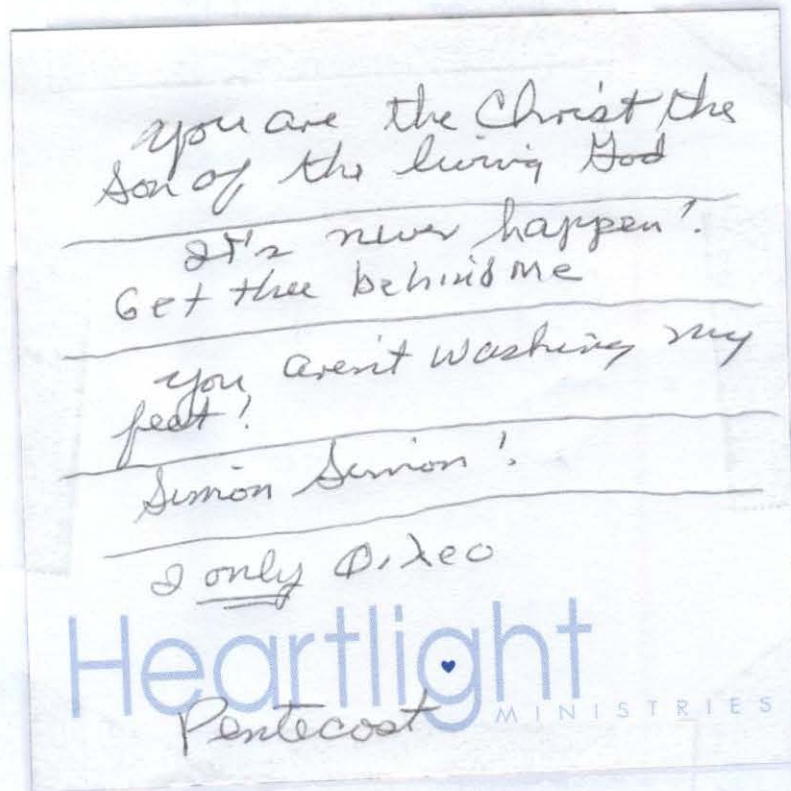 you are the Christ the
Son of the living God
It's never happen!
Get thee behind me
you aren't washing my
feat!
Simon Simon!
I only Φιλεο
Heartlight
MINISTRIES
Pentecost